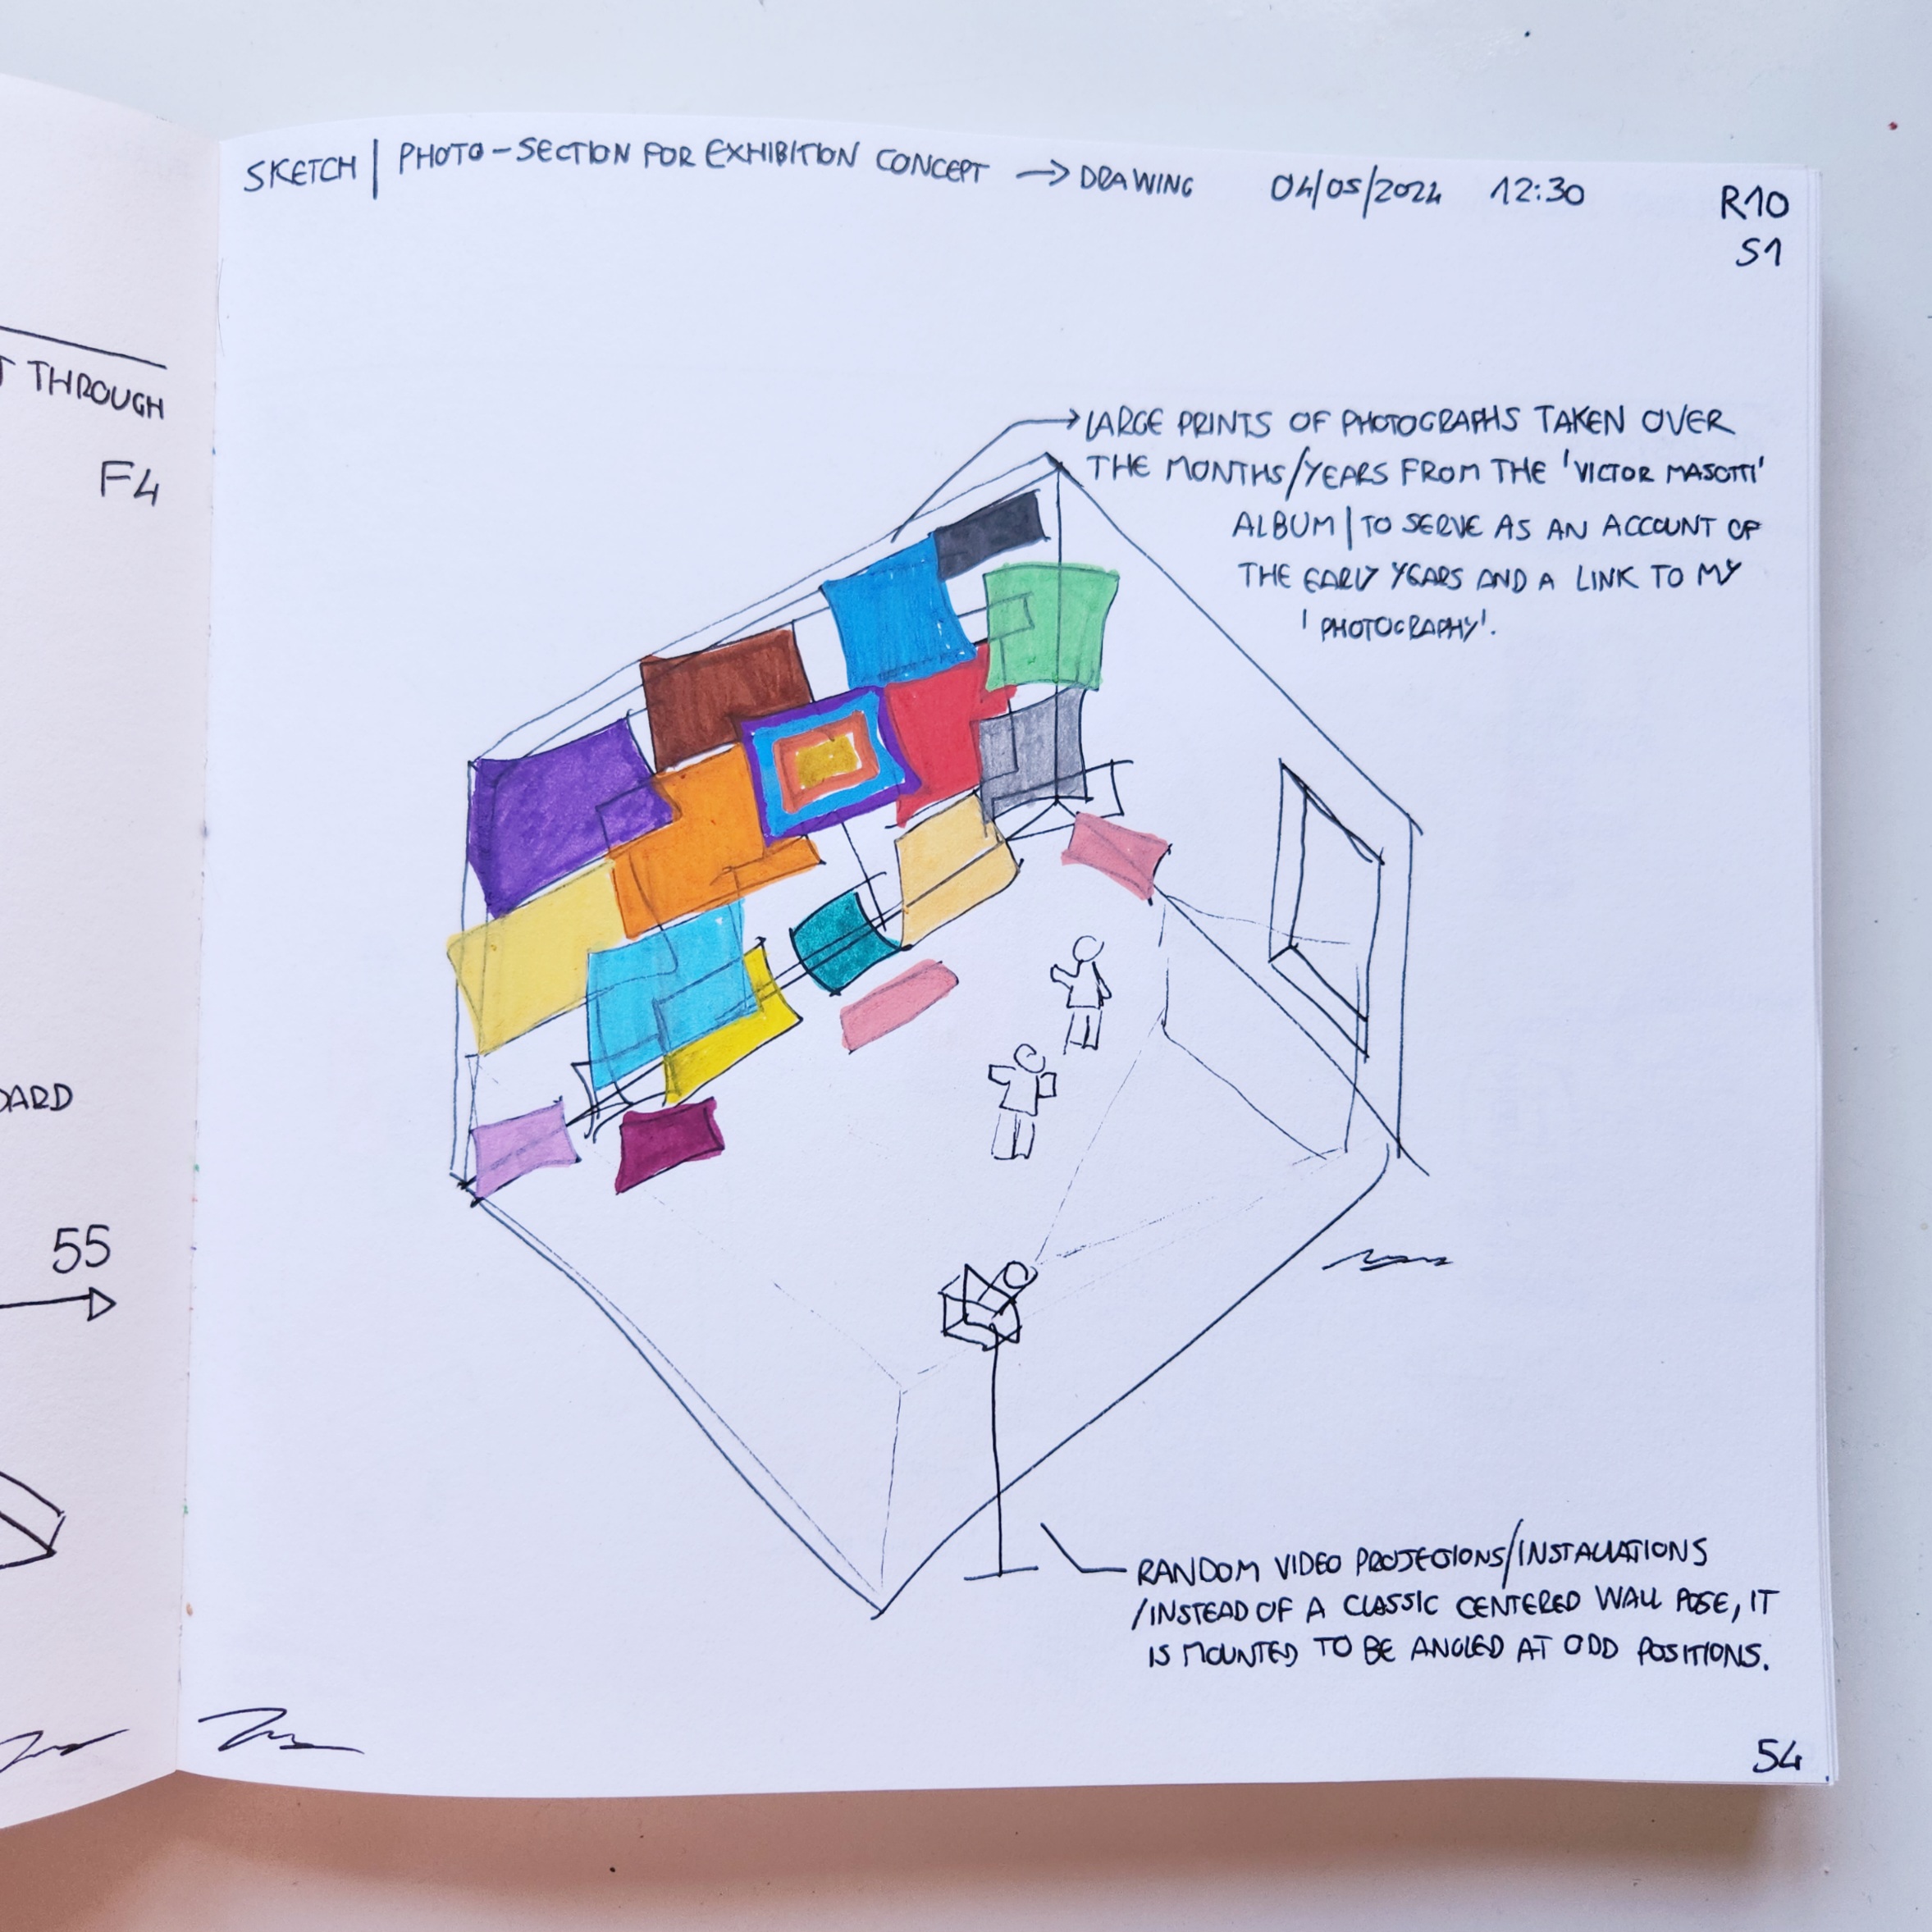 T THROUGH
F4
DARD
55
SKETCH | PHOTO-SECTION FOR EXHIBITION CONCEPT → DRAWING 04/05/2024 12:30 R10
S1
LARGE PRINTS OF PHOTOGRAPHS TAKEN OVER
THE MONTHS/YEARS FROM THE 'VICTOR MASOTTI'
ALBUM | TO SERVE AS AN ACCOUNT OF
THE EARLY YEARS AND A LINK TO MY
'PHOTOGRAPHY'.
RANDOM VIDEO PROJECTIONS/INSTALLATIONS
/INSTEAD OF A CLASSIC CENTERED WALL POSE, IT
IS MOUNTED TO BE ANGLED AT ODD POSITIONS.
54